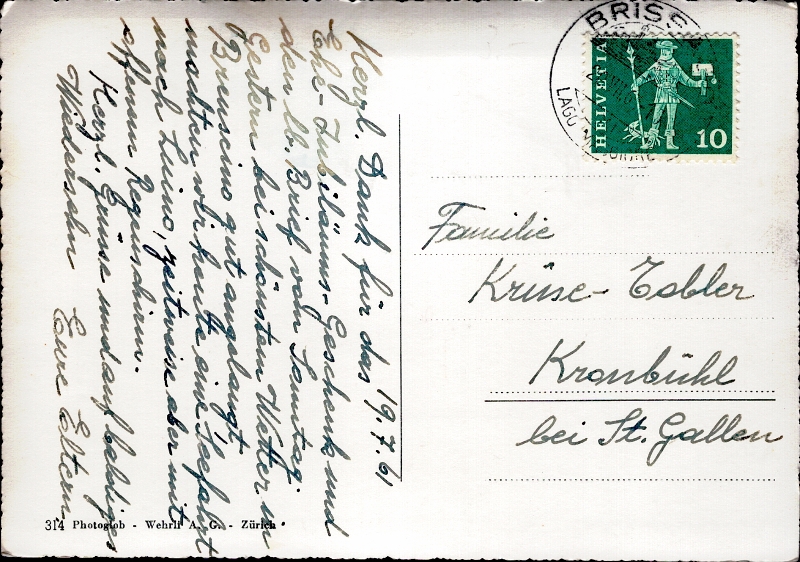 19.7.61
Herzl. Dank für das
Ehe-Jubiläums-Geschenk und
den lb. Brief von Samstag.
Gestern bei schönstem Wetter in
Brusino gut angelangt
machten wir heute eine Seefahrt
nach Luino, zeitweise aber mit
offenem Regenschirm.
Herzl. Grüsse und auf baldiges
Wiedersehn Eure Eltern
BRISS
LAGO
HELVETIA
10
Familie
Krüse-Tobler
Kronbühl
bei St. Gallen
314 Photoglob - Wehrli A. G. - Zürich